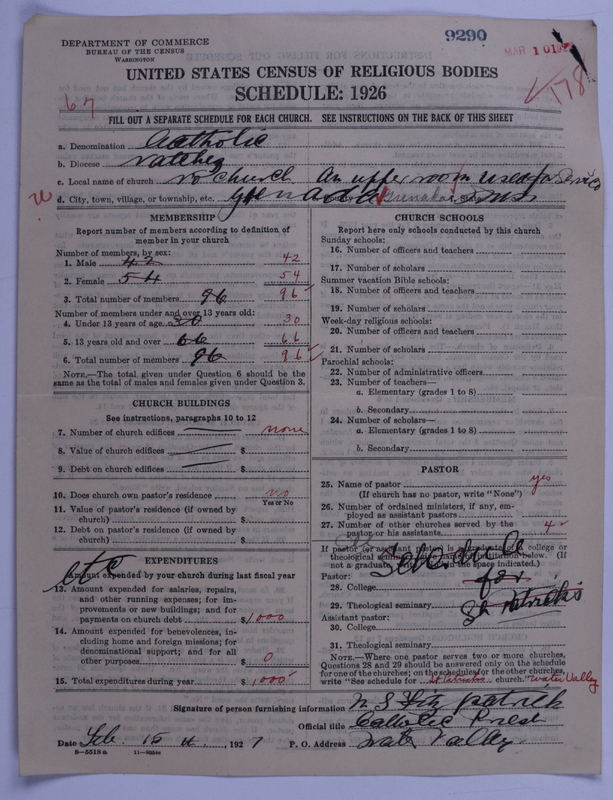 DEPARTMENT OF COMMERCE
BUREAU OF THE CENSUS
WASHINGTON
9290
MAR 10 192
178
UNITED STATES CENSUS OF RELIGIOUS BODIES
SCHEDULE: 1926
67
FILL OUT A SEPARATE SCHEDULE FOR EACH CHURCH. SEE INSTRUCTIONS ON THE BACK OF THIS SHEET
a. Denomination Catholic
b. Diocese Natchez
c. Local name of church no church An upper room used for Service
d. City, town, village, or township, etc. Grenada Grenada Miss.
MEMBERSHIP
Report number of members according to definition of
member in your church
Number of members, by sex:
1. Male 42 42
2. Female 54 54
3. Total number of members 96 96
Number of members under and over 13 years old:
4. Under 13 years of age 30 30
5. 13 years old and over 66 66
6. Total number of members 96 96
NOTE.—The total given under Question 6 should be
same as the total of males and females given under Question 3.
CHURCH BUILDINGS
See instructions, paragraphs 10 to 12
7. Number of church edifices none
8. Value of church edifices $
9. Debt on church edifices $
10. Does church own pastor's residence no
Yes or No
11. Value of pastor's residence (if owned by
church) $
12. Debt on pastor's residence (if owned by
church) $
EXPENDITURES
Amount expended by your church during last fiscal year
13. Amount expended for salaries, repairs,
and other running expenses; for im-
provements or new buildings; and for
payments on church debt $1000
14. Amount expended for benevolences, in-
cluding home and foreign missions; for
denominational support; and for all
other purposes $ 0
15. Total expenditures during year $1000
CHURCH SCHOOLS
Report here only schools conducted by this church
Sunday schools:
16. Number of officers and teachers
17. Number of scholars
Summer vacation Bible schools:
18. Number of officers and teachers
19. Number of scholars
Week-day religious schools:
20. Number of officers and teachers
21. Number of scholars
Parochial schools:
22. Number of administrative officers
23. Number of teachers—
a. Elementary (grades 1 to 8)
b. Secondary
24. Number of scholars—
a. Elementary (grades 1 to 8)
b. Secondary
PASTOR
25. Name of pastor yes
(If church has no pastor, write "None")
26. Number of ordained ministers, if any, em-
ployed as assistant pastors
27. Number of other churches served by the
pastor or his assistants 4
If pastor (or assistant pastor) is a graduate of a college or
theological seminary, give name of institution below. (If
not a graduate, write "None" in the space indicated.)
See schedule
for
St Patrick's
Pastor:
28. College
29. Theological seminary
Assistant pastor:
30. College
31. Theological seminary
NOTE.—Where one pastor serves two or more churches,
Questions 28 and 29 should be answered only on the schedule
for one of the churches; on the schedules for the other churches,
write "See schedule for St Patricks church." Water Valley
Signature of person furnishing information N S Fitzpatrick
Official title Catholic Priest
Date Feb. 15 1927 P. O. Address Water Valley
8—5518a